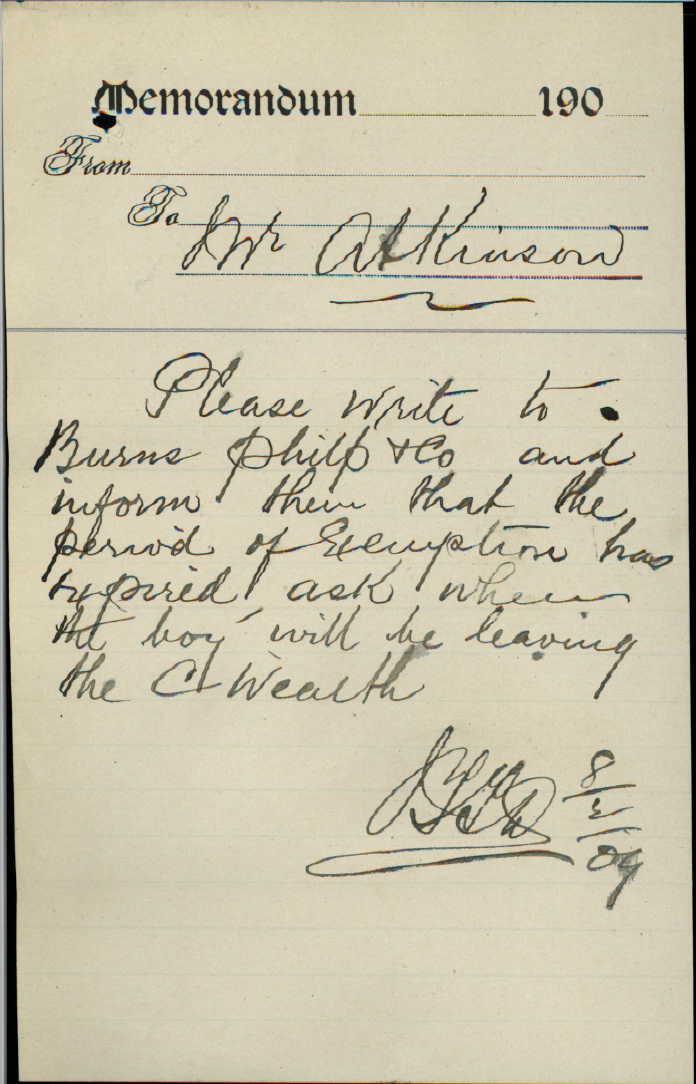 Memorandum 190
From
To Mr Atkinson
Please write to
Burns Philp & Co and
inform them that the
period of Exemption has
expired ask when
the boy will be leaving
the C-Wealth
8/2/09